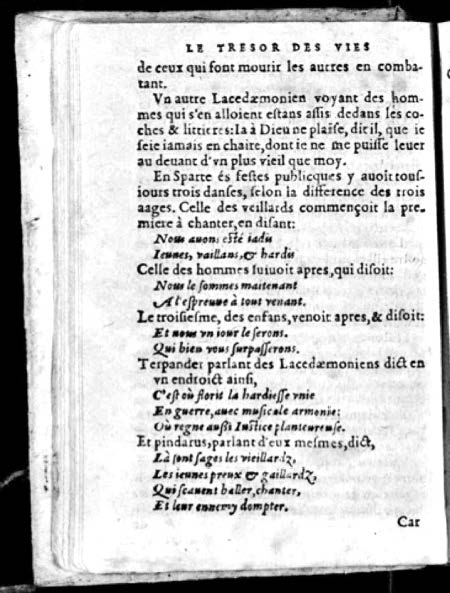 LE TRESOR DES VIES
de ceux qui font mourir les autres en comba-
tant.
Vn autre Lacedæmonien voyant des hom-
mes qui s'en alloient estans assis dedans les co-
ches & littieres: Ia à Dieu ne plaise, dit il, que ie
seie iamais en chaire, dont ie ne me puisse leuer
au deuant d'vn plus vieil que moy.
En Sparte és festes publicques y auoit tous-
iours trois danses, selon la difference des trois
aages. Celle des veillards commençoit la pre-
miere à chanter, en disant:
Nous auons esté iadis
Ieunes, vaillans, & hardis
Celle des hommes suiuoit apres, qui disoit:
Nous le sommes maitenant
A l'espreuue à tout venant.
Le troisiesme, des enfans, venoit apres, & disoit:
Et nous vn iour le serons.
Qui bien vous surpasserons.
Terpander parlant des Lacedæmoniens dict en
vn endroict ainsi,
C'est où florit la hardiesse vnie
En guerre, auec musicale armonie:
Où regne aussi Iustice planteureuse.
Et pindarus, parlant d'eux mesmes, dict,
Là sont sages les vieillardz,
Les ieunes preux & gaillardz,
Qui scauent baller, chanter,
Et leur ennemy dompter.
Car